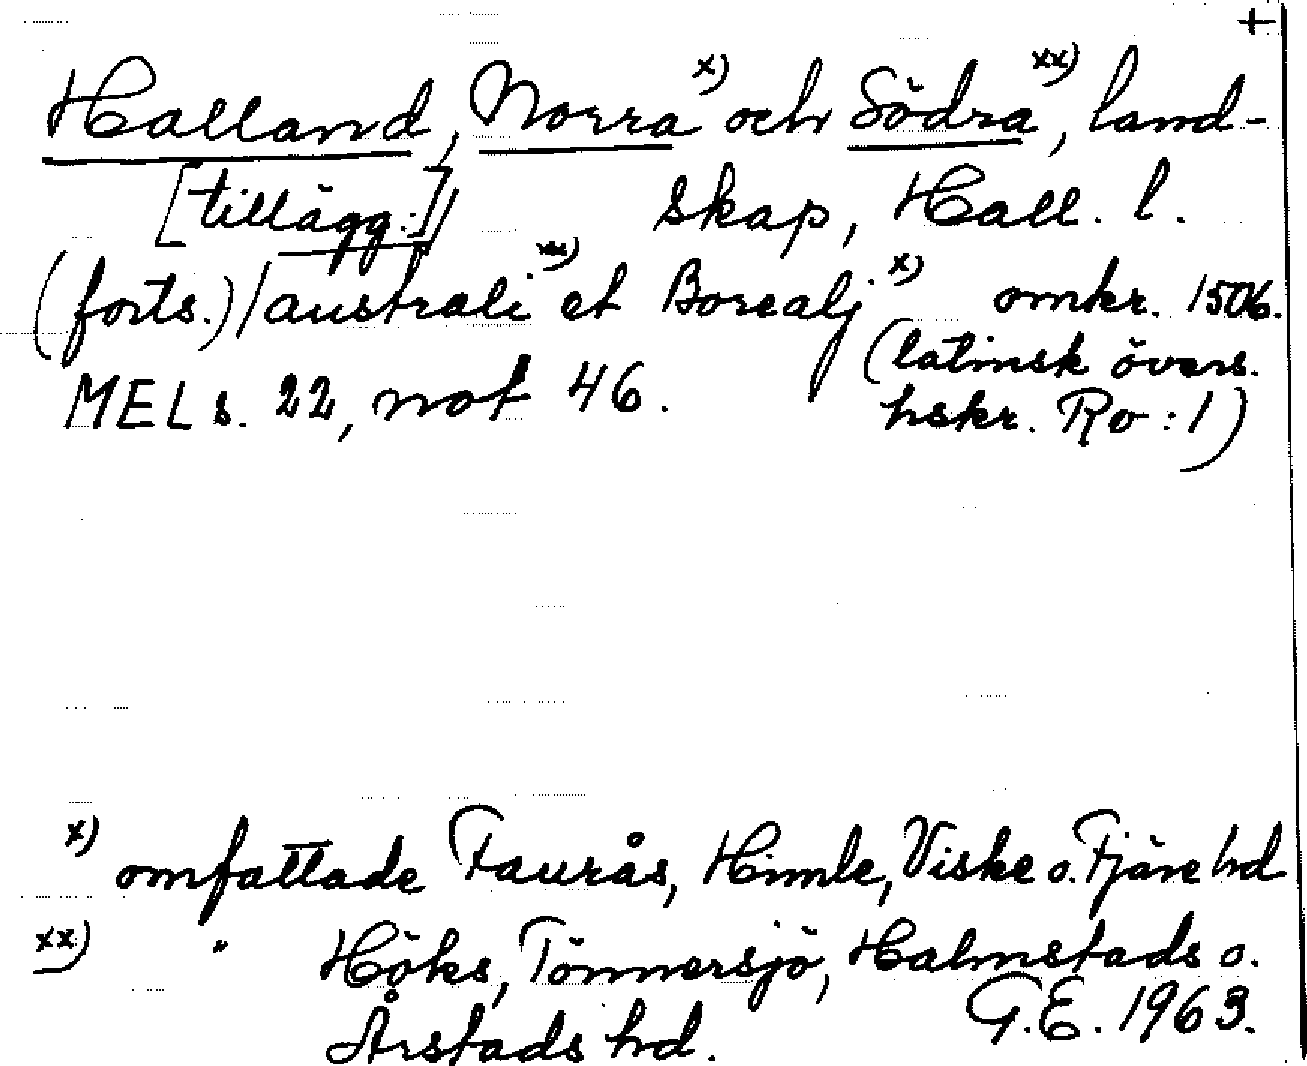 +
Halland, Norra x) och Södra xx), land-
[tillägg:] skap, Hall. l.
(forts.) / australi xx) et Borealj x) omkr. 1506.
(latinsk övers.
MELs. 22, not 46. hskr. Ro: 1)
x) omfattade Faurås, Himle, Viske o. Fjäre hd
xx) " Höks, Tönnersjö, Halmstads o.
Årstads hd. G.E. 1963.